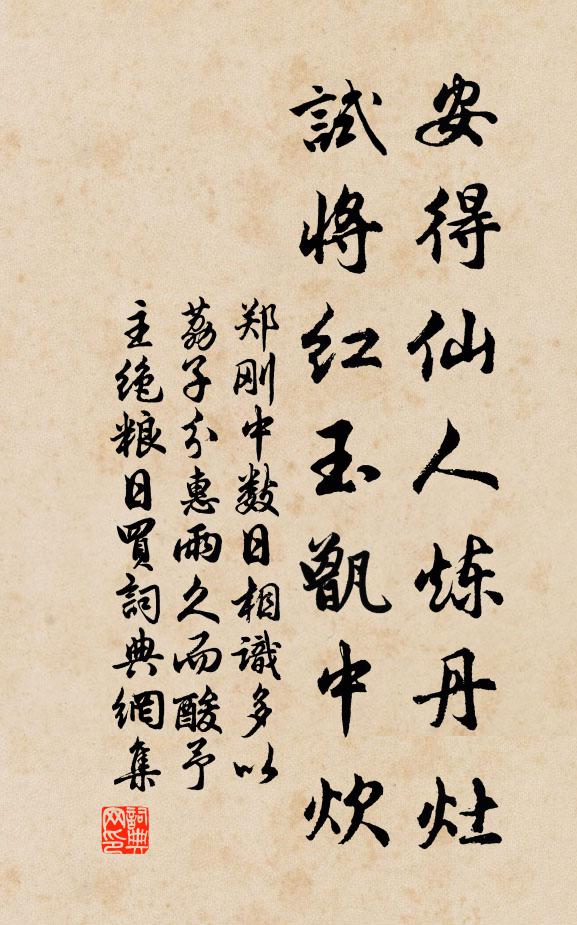 安得仙人炼丹灶
試將红玉甑中炊
郑刚中数日相識多以
荔子分惠雨久而酸予
主绝粮日買詞典網集
詞典网印